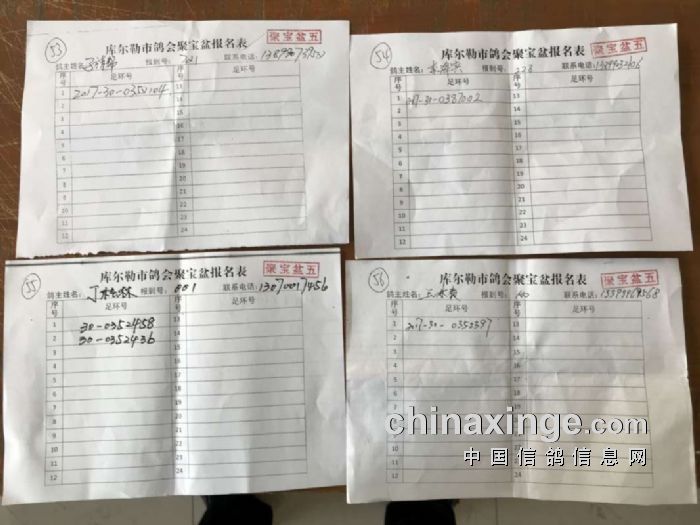 53
聚宝盆五
库尔勒市鸽会聚宝盆报名表
鸽主姓名: 报到号: 联系电话:
序号 足环号 序号 足环号
1 2017-30-0351104 13
2 14
3 15
4 16
5 17
6 18
7 19
8 20
9 21
10 22
11 23
12 24
54
聚宝盆五
库尔勒市鸽会聚宝盆报名表
鸽主姓名: 报到号: 联系电话:
序号 足环号 序号 足环号
1 2017-30-0387002 13
2 14
3 15
4 16
5 17
6 18
7 19
8 20
9 21
10 22
11 23
12 24
55
聚宝盆五
库尔勒市鸽会聚宝盆报名表
鸽主姓名: 丁 报到号: 001 联系电话: 13070017456
序号 足环号 序号 足环号
1 30-0352458 13
2 30-0352436 14
3 15
4 16
5 17
6 18
7 19
8 20
9 21
10 22
11 23
12 24
56
聚宝盆五
库尔勒市鸽会聚宝盆报名表
鸽主姓名: 报到号: 联系电话:
序号 足环号 序号 足环号
1 2017-30-0350397 13
2 14
3 15
4 16
5 17
6 18
7 19
8 20
9 21
10 22
11 23
12 24
chinaxinge.com
中国信鸽信息网